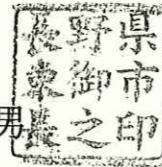 長野県
東御市
長之印
男